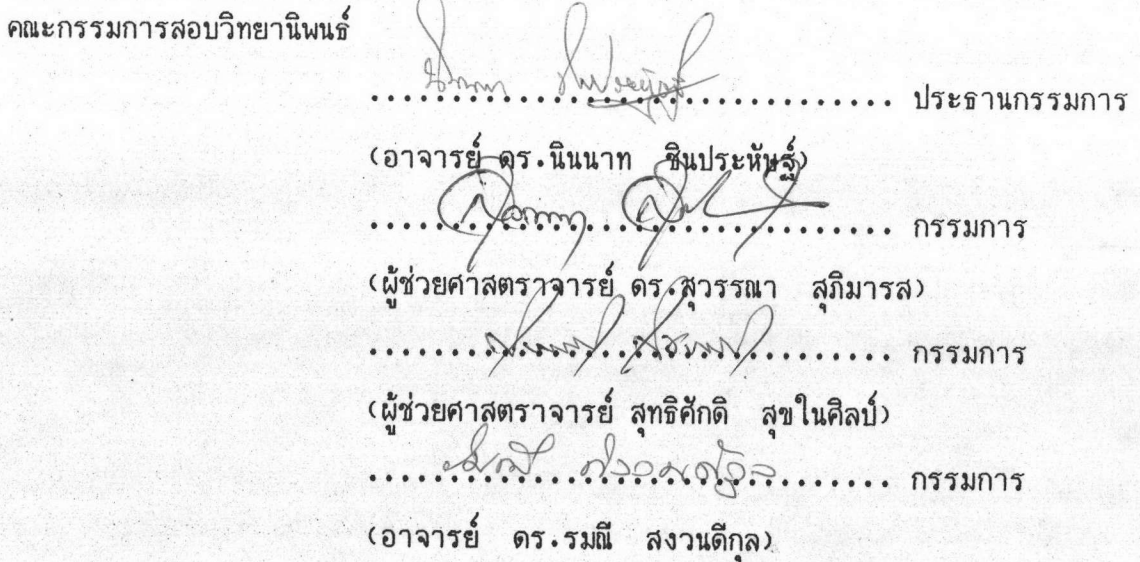 คณะกรรมการสอบวิทยานิพนธ์
.................................... ประธานกรรมการ
(อาจารย์ ดร.นินนาท ชินประหัษฐ์)
.................................... กรรมการ
(ผู้ช่วยศาสตราจารย์ ดร.สุวรรณา สุภิมารส)
.................................... กรรมการ
(ผู้ช่วยศาสตราจารย์ สุทธิศักดิ์ สุขในศิลป์)
.................................... กรรมการ
(อาจารย์ ดร.รมณี สงวนดีกุล)